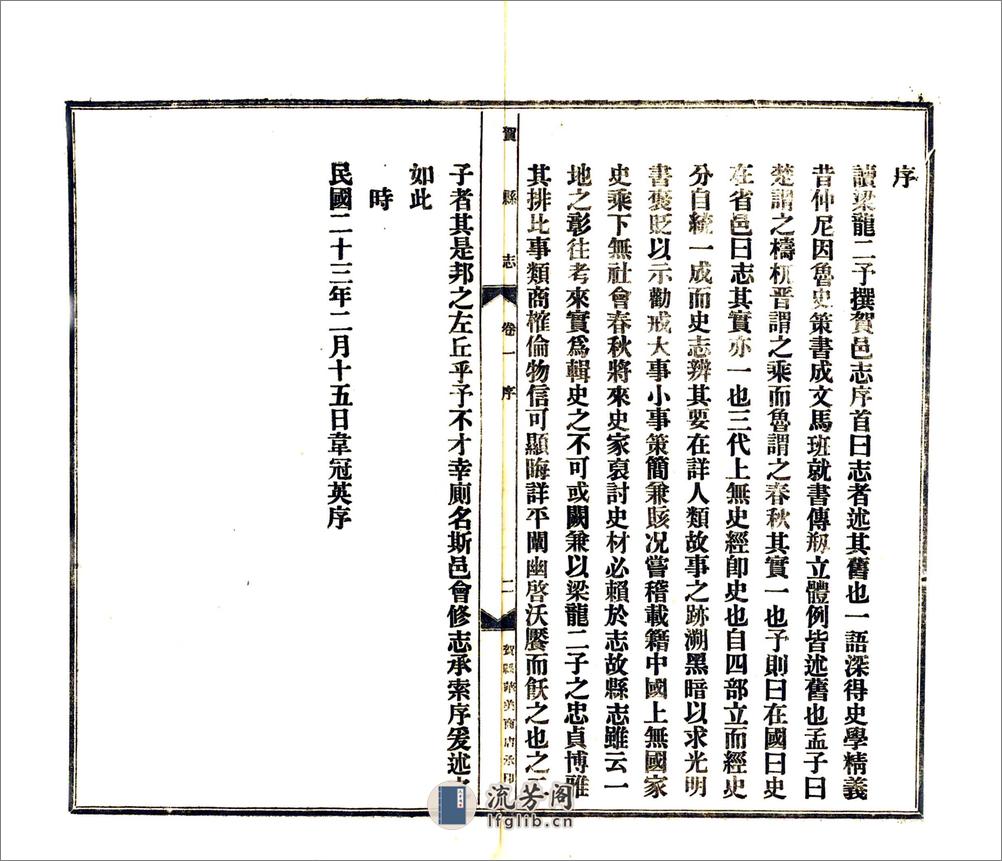 序
讀梁龍二子撰賀邑志序首曰志者述其舊也一語深得史學精義
昔仲尼因魯史策書成文馬班就書傳剏立體例皆述舊也孟子曰
楚謂之檮杌晋謂之乘而魯謂之春秋其實一也予則曰在國曰史
在省邑曰志其實亦一也三代上無史經卽史也自四部立而經史
分自統一成而史志辨其要在詳人類故事之跡溯黑暗以求光明
書褒貶以示勸戒大事小事策簡兼賅况嘗稽載籍中國上無國家
史乘下無社會春秋將來史家裒討史材必賴於志故縣志雖云一
地之彰往考來實爲輯史之不可或闕兼以梁龍二子之忠貞博雅
其排比事類商榷倫物信可顯晦詳平闡幽啓沃饜而飫之也之二
賀縣志 卷一 序 二 賀縣 美 承印
子者其是邦之左丘乎予不才幸廁名斯邑會修志承索序爰述
如此
時
民國二十三年二月十五日韋冠英序
流芳阁
lfglib.cn